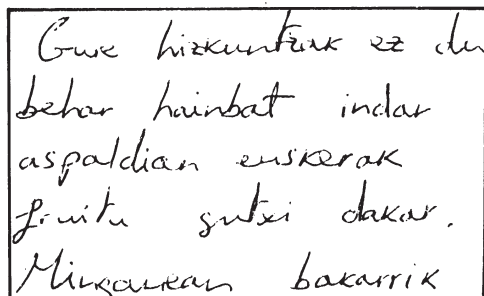 Gure hizkuntzak ez du
behar hainbat indar
aspaldian euskerak
fruitu gutxi dakar.
Mingainean bakarrik